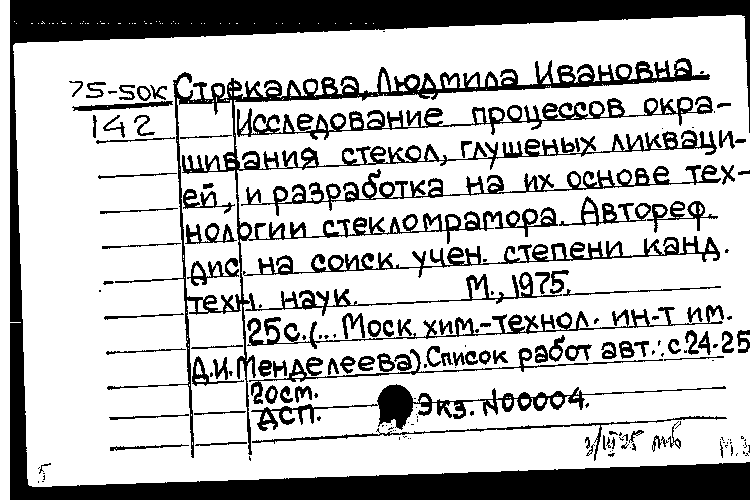 75-50к Стрекалова, Людмила Ивановна.
142 Исследование процессов окра-
шивания стекол, глушеных ликваци-
ей, и разработка на их основе тех-
нологии стекломрамора. Автореф.
дис. на соиск. учен. степени канд.
техн. наук. М., 1975.
25с. (... Моск. хим.-технол. ин-т им.
Д.И. Менделеева). Список работ авт.: с.24-25
20см.
ДСП. Экз. №00004.
5